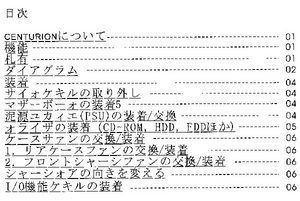 目次
CENTURIONについて 01
機能 01
札有 01
ダイアグラム 02
装着 04
サイォケキルの取り外し 04
マザーボーォの装着5 04
泥源ユカィエ(PSU)の装着/交換 04
ォライザの装着 (CD-ROM, HDD, FDDほか) 05
ケースサァンの交換/装着 06
1. リアケースファンの交換/装着 06
2. フロントシャーシファンの交換/装着 06
シャーシォアの向きを変える 06
I/O機能ケキルの装着 06